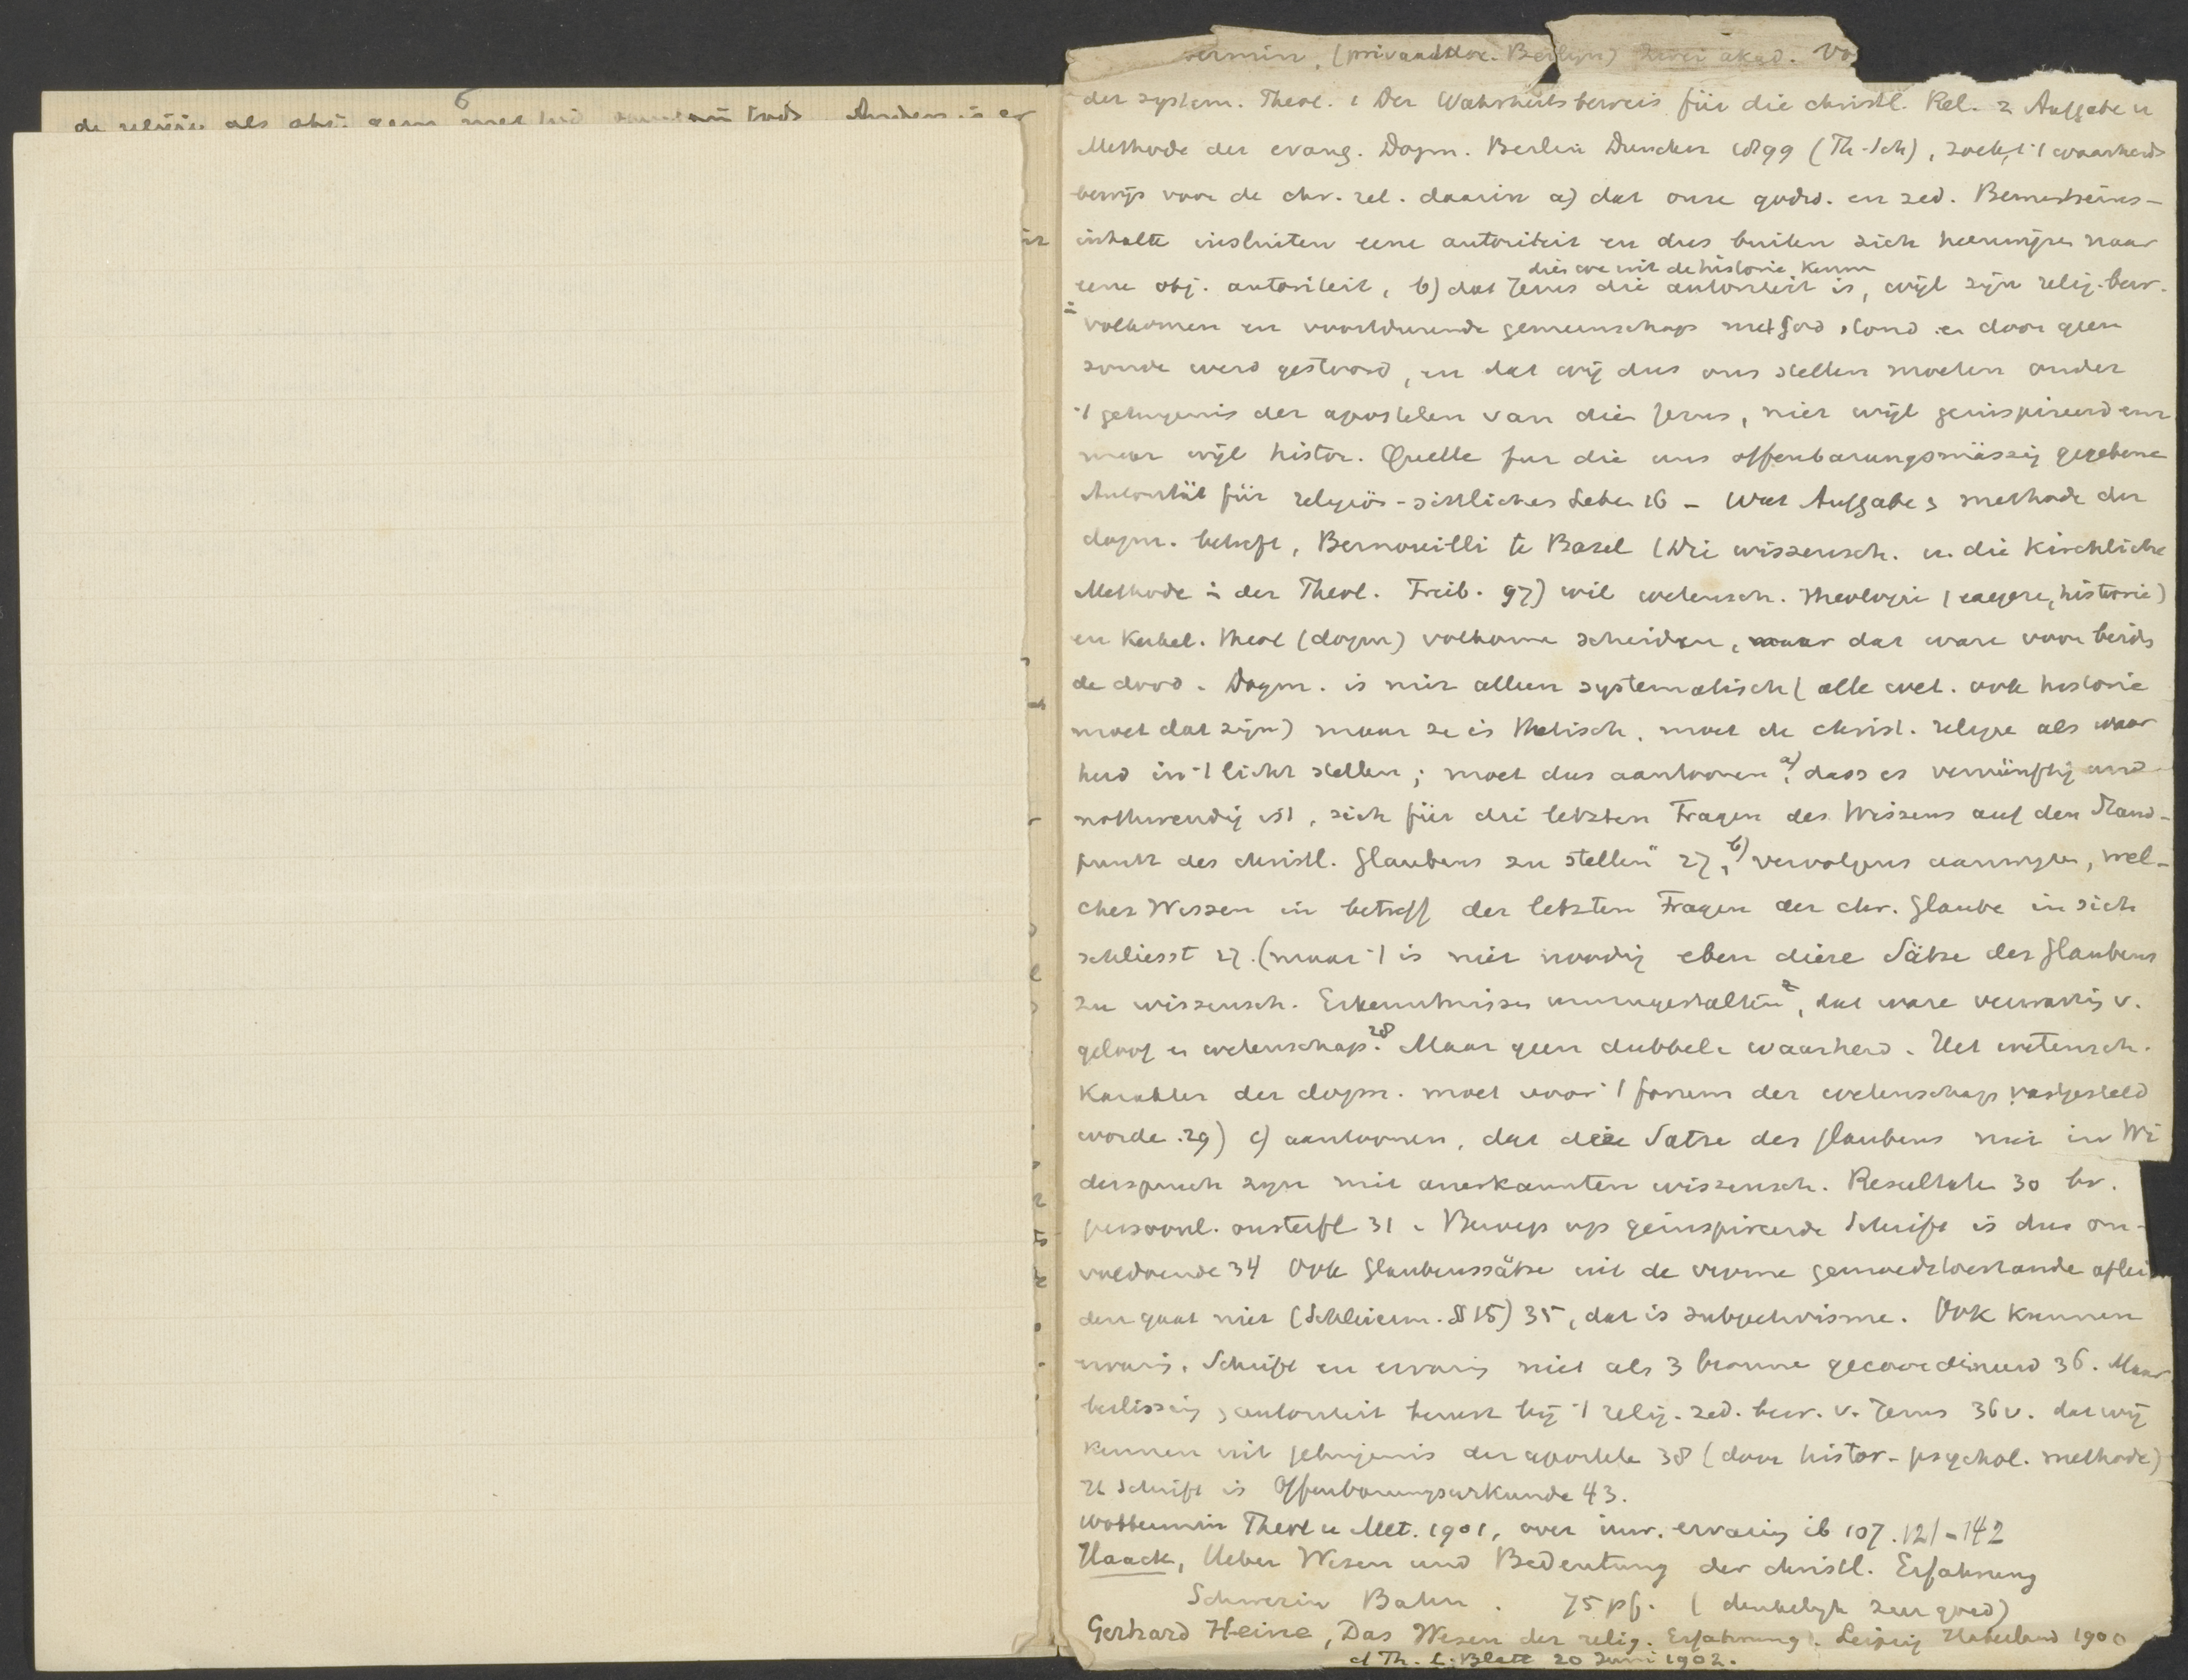 de religie als obj. geen met
Anders is er
(privaatdoc. Berlijn) Zwei akad. Vo
der system. Theol. 1 Der Wahrheitsbeweis für die christl. Rel. 2 Aufgabe u
Methode der evang. Dogm. Berlin Duncker 1899 (Th-Sch), zoekt ’t waarheids
bewijs voor de chr. rel. daarin a) dat onze godsd. en zed. Bewustseins-
inhalte insluiten eene autoriteit en dus buiten zich heenwijzen naar
dien we uit de historie kennen
eene obj. autoriteit, b) dat Jezus die autoriteit is, wijl zijn relig. bew.
in
volkomen en voortdurende gemeenschap met God stond en door geen
zonde werd gestoord, en dat wij dus ons stellen moeten onder
’t getuigenis der apostelen van dien Jezus, niet wijl geinspireerd enz
maar wijl histor. Quelle fur die uns offenbarungsmässig gegebene
Autorität für religiös-sittliches Leben 16 – Wat Aufgabe & methode der
dogm. betreft, Bernouilli te Basel (Die wissensch. u. die Kirchliche
Methode in der Theol. Freib. 97) wil wetensch. theologie (exegese, historie)
en Kerkel. theol (dogm) volkomen scheiden, maar dat ware voor beide
de dood. Dogm. is niet alleen systematisch (alle wet. ook historie
moet dat zijn) maar ze is thetisch, moet de christ. religie als waar
heid in ’t licht stellen; moet dus aantoonen a) „dass es vernünftig und
nothwendig ist, sich für die letzten Fragen des Wissens auf den Stand-
punkt des christl. Glaubens zu stellen" 27, b) vervolgens aanwijzen, wel-
ches Wissen in betreff der letzten Fragen der chr. Glaube in sich
schliesst 27. (maar ’t is niet noodig eben diese Sätze des Glaubens
zu wissensch. Erkenntnissen umzugestalten, dat ware verwarring v.
geloof en wetenschap. 28 Maar geen dubbele waarheid. Het wetensch.
Karakter der dogm. moet voor ’t forum der wetenschap vastgesteld
worde. 29) c) aantoonen, dat deze Sätze des Glaubens niet in Wi
derspruch zijn mit anerkannten wissensch. Resultate 30 bv.
persoonl. onsterfl. 31. Beroep op geinspireerde Schrift is dus on-
voldoende 34 Ook Glaubenssätze uit de vrome gemoedstoestande aflei
den gaat niet (Schleierm. § 15) 35, dat is subjectivisme. Ook kunnen
Schrift en ervaring niet als 3 bronne gecoordineerd 36. Maar
beslissing & autoriteit berust bij ’t relig. zed. bew. v. Jezus 36 v. dat wij
kennen uit getuigenis der apostele 38 (door histor.-psychol. methode)
H Schrift is Offenbarungsurkunde 43.
Wobbermin Theol u Met. 1901, over inw. ervaring ib 107. 121-142
Haack, Ueber Wesen und Bedeutung der christl. Erfahrung
Schwerin Bahn. 75 pf. (denkelijk zeer goed)
Gerhard Heine, Das Wesen der relig. Erfahrung. Leipzig Haberland 1900
cf Th. L. Blatt 20 Juni 1902.